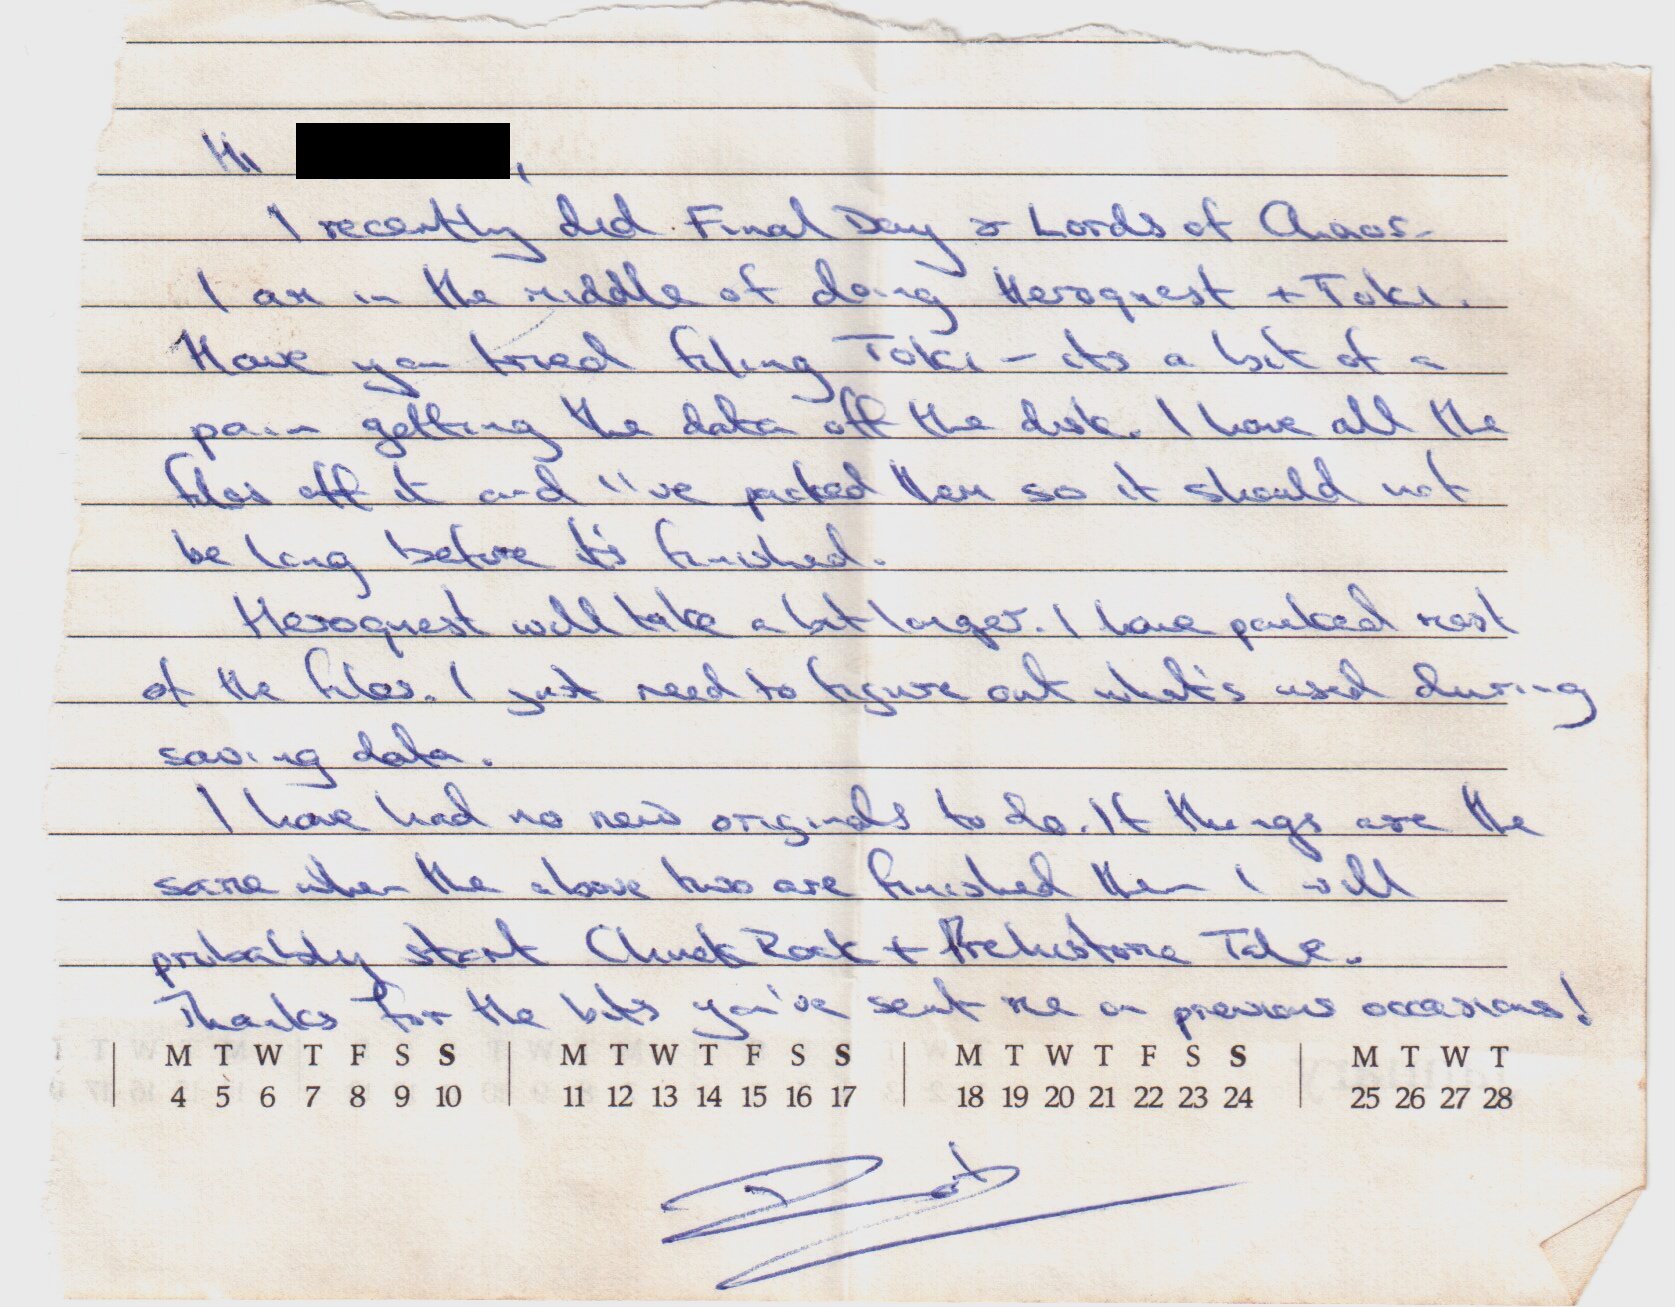 Hi ,
I recently did Final Day & Lords of Chaos.
I am in the middle of doing Heroquest + Toki.
Have you tried filing Toki - its a bit of a
pain getting the data off the disk. I have all the
files off it and I've packed them so it should not
be long before it's finished.
Heroquest will take a bit longer. I have packed most
of the files. I just need to figure out what's used during
saving data.
I have had no new originals to do. If things are the
same when the above two are finished then I will
probably start Chuck Rock + Prehistoric Tale.
Thanks for the bits you've sent me on previous occasions!
M T W T F S S M T W T F S S M T W T F S S M T W T
4 5 6 7 8 9 10 11 12 13 14 15 16 17 18 19 20 21 22 23 24 25 26 27 28